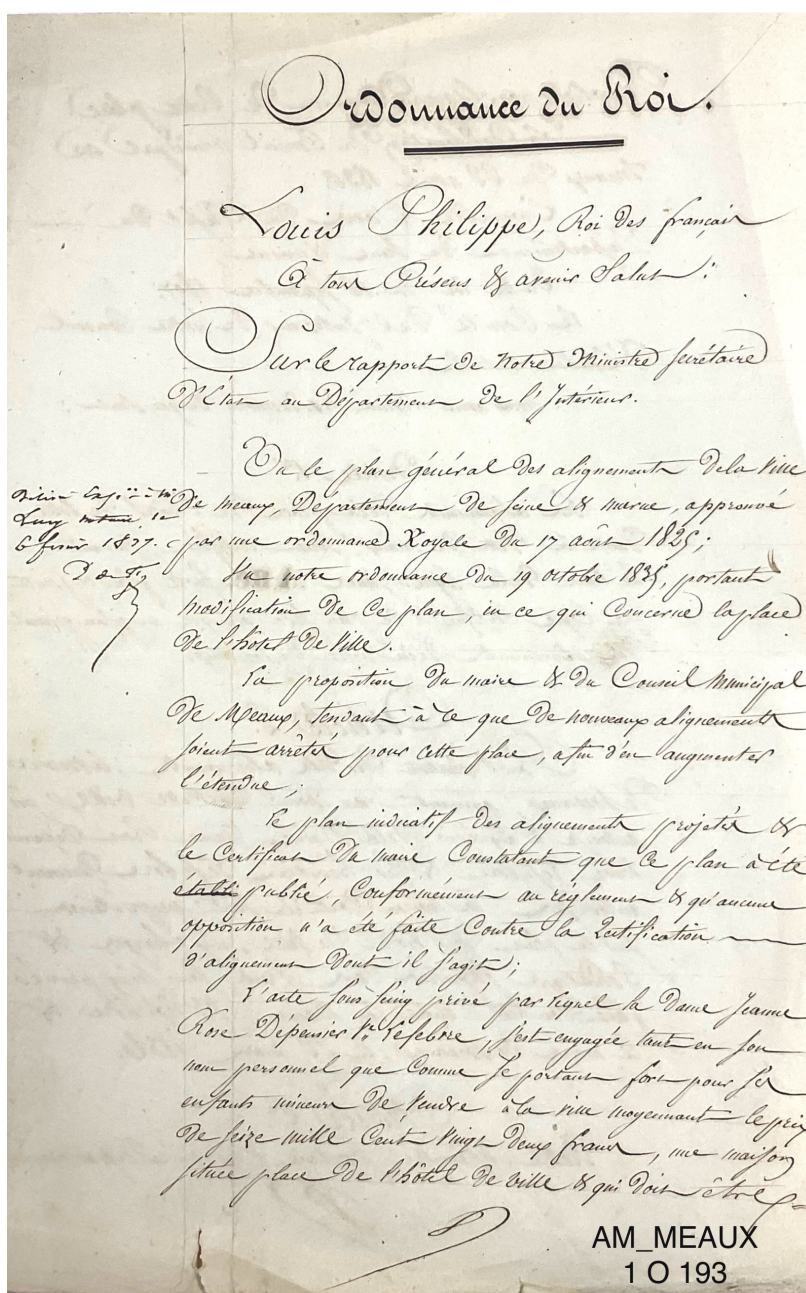 Ordonnance du Roi.
Louis Philippe, Roi des français
À tous Présens & avenir Salut :
Sur le rapport de Notre Ministre secrétaire
D'État au Département de l'Intérieur.
Vu le plan général des alignements de la Ville
De meaux, Département de seine & marne, approuvé
par une ordonnance Royale du 17 août 1825;
Vu notre ordonnance du 19 octobre 1835, portant
modification de ce plan, en ce qui concerne la place
de l'hôtel de Ville.
La proposition du maire & du Conseil Municipal
De Meaux, tendant à ce que de nouveaux alignements
soient arrêtés pour cette place, afin d'en augmenter
l'étendue;
Le plan indicatif des alignements projetés &
le Certificat du maire Constatant que ce plan a été
établi publié, Conformément au règlement & qu'aucune
opposition n'a été faite Contre la Rectification
d'alignement dont il s'agit;
L'acte sous seing privé par lequel la Dame Jeanne
Rose Dépensier Ve Lefebvre, s'est engagée tant en son
nom personnel que Comme se portant fort pour ses
enfants mineurs de Vendre à la ville moyennant le prix
de seize mille Cent Vingt Deux francs, une maison
située place de l'hôtel de Ville & qui doit être
6 février 1837.
AM_MEAUX
1 O 193